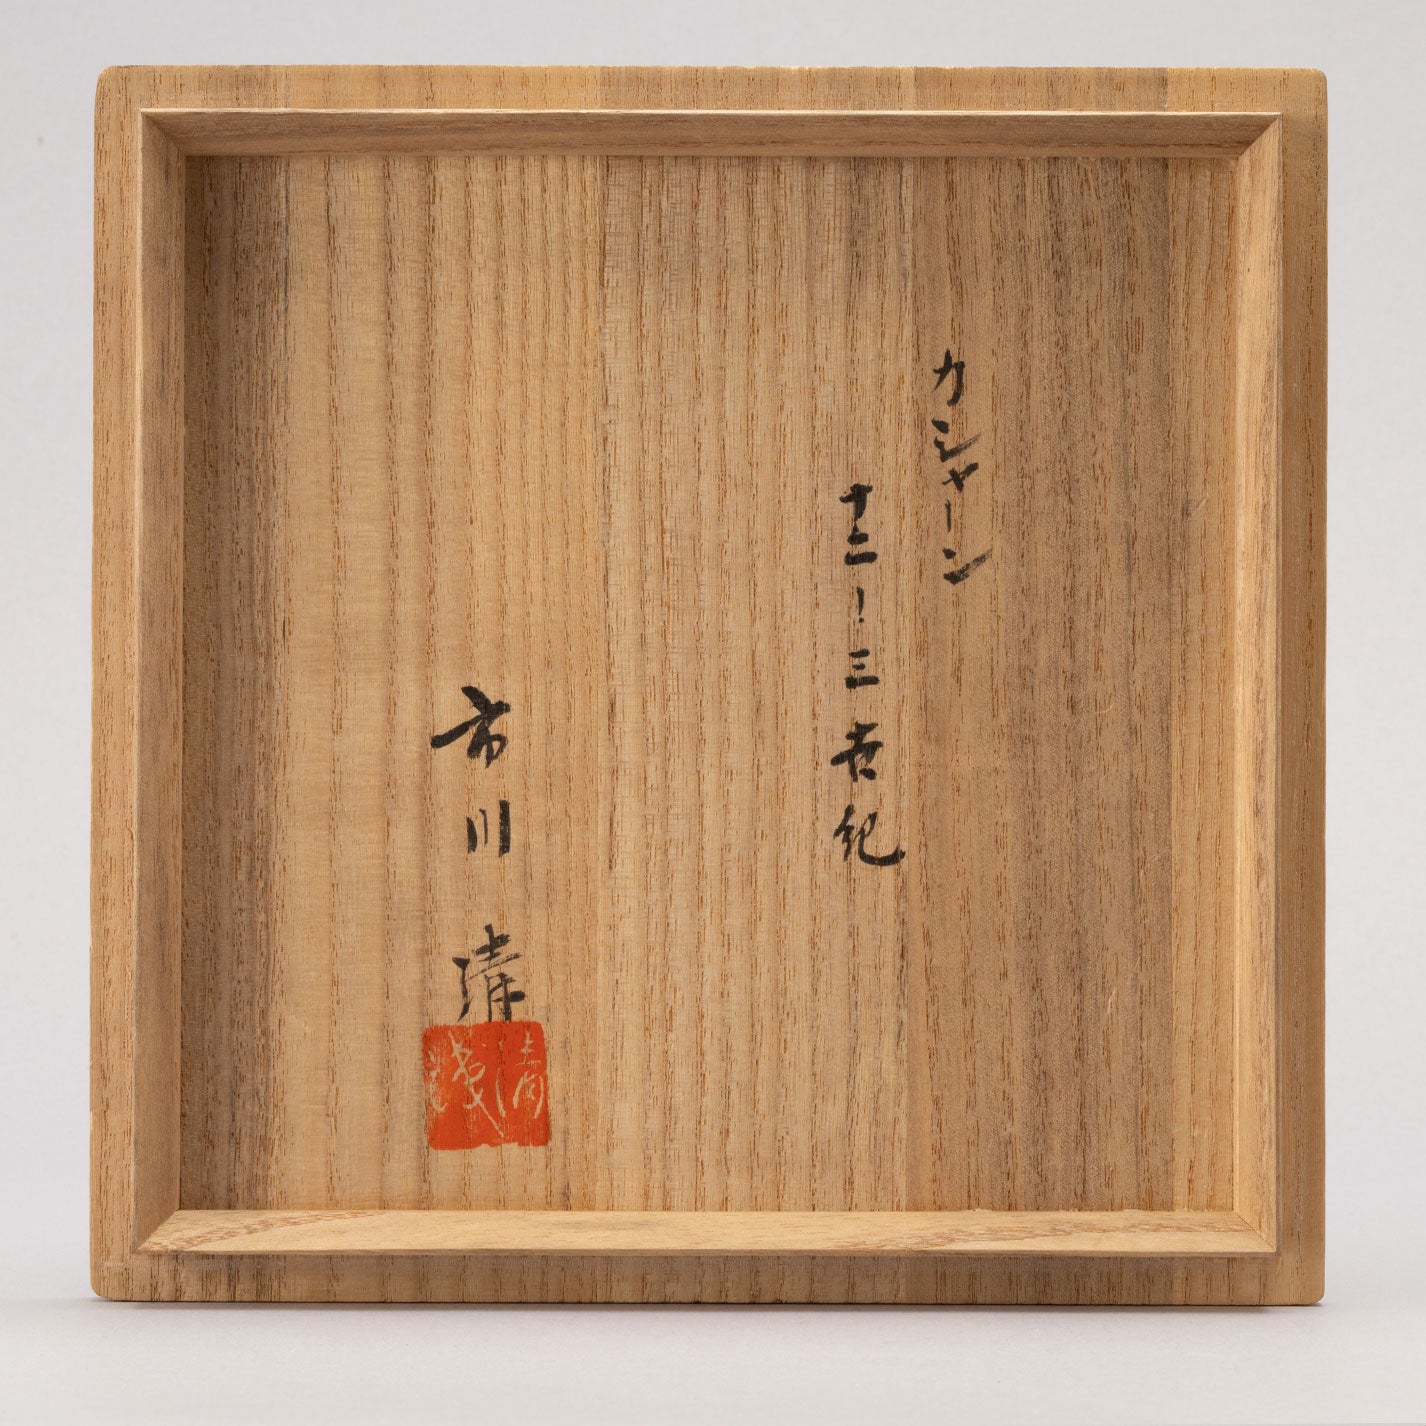 カシャーン
十二－三世紀
市川 清